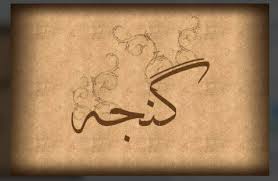 گنجه